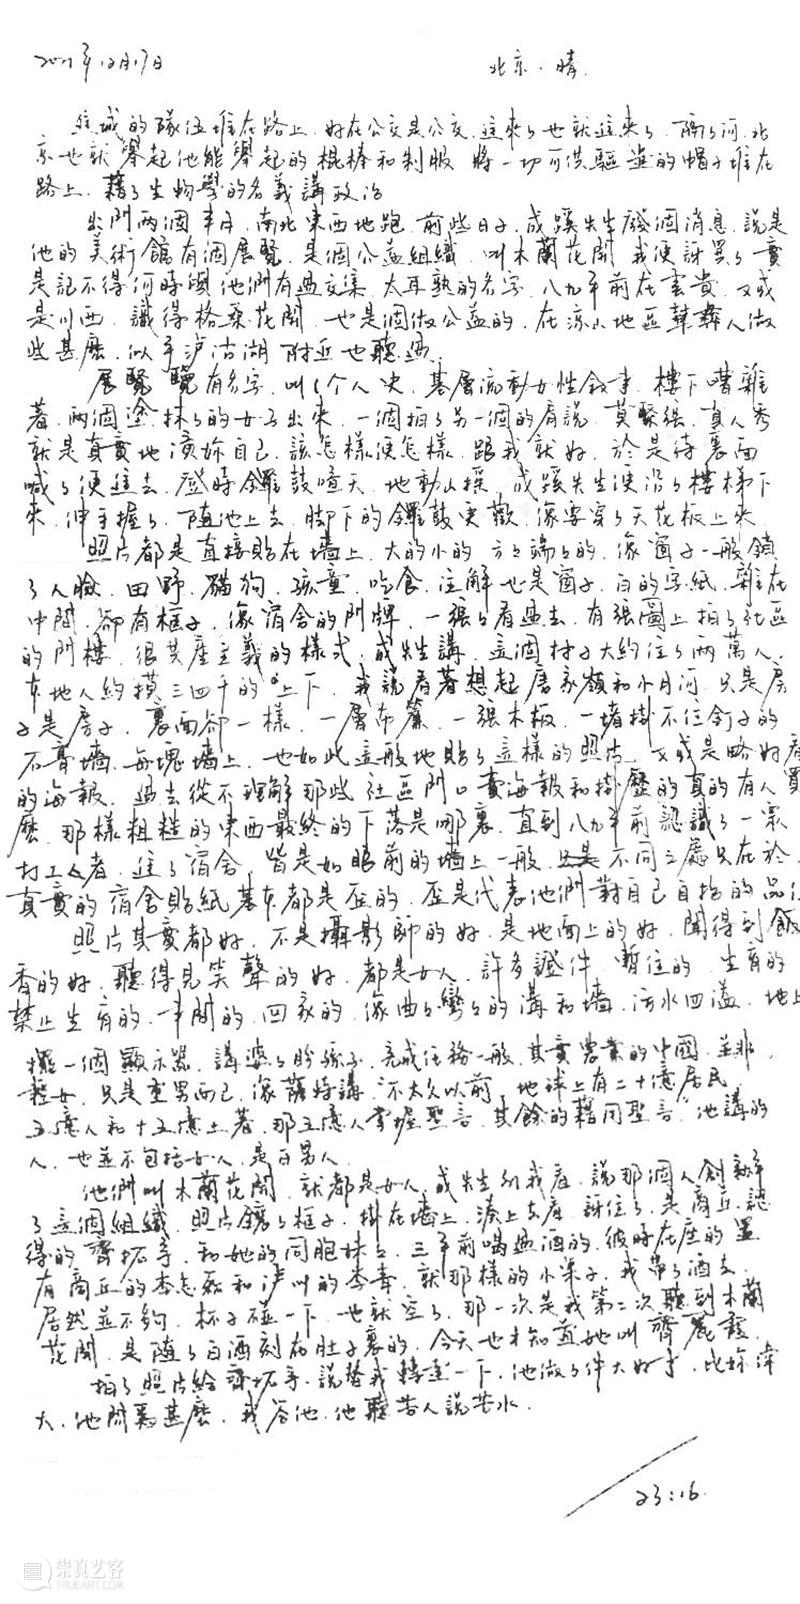 2021年12月17日 北京·晴.
進城的隊伍堆在路上.好在公交是公交.進來了也就進來了.隔了河.北
京也就舉起他能舉起的棍棒和制服 將一切可供驅逐的帽子堆在
路上.藉了生物學的名義講政治
出門兩個半月.南北東西地跑.前些日子.成蹊先生發個消息.說是
他的美術館有個展覽.是個公益組織.叫木蘭花開 我便訝異了 實
是記不得何時與他們有過交集.太耳熟的名字.八九年前在雲貴.又或
是川西.識得格桑花開.也是個做公益的.在涼山地區幫彝人做
些甚麼.似乎泸沽湖附近也聽過.
展覽 覽有名字.叫1个人史.基層流動女性敘事.樓下嘈雜
著.兩個塗抹了的女子出來.一個拍了另一個的肩說.莫緊張.真人秀
就是真實地演妳自己.該怎樣便怎樣.跟我就好.於是待裏面
喊了便進去.登時鑼鼓喧天.地動山搖.成蹊先生便沿了樓梯下
來.伸手握了.隨他上去.腳下的鑼鼓更歡.像要穿了天花板上來.
照片都是直接貼在墻上.大的小的 方方端端的.像窗子一般鎖
了人臉.田野.貓狗.孩童.吃食.注解也是窗子.白的字紙.雜在
中間.卻有框子.像宿舍的門牌.一張張看過去.有張圖上拍了社區
的門樓.很共產主義的樣式.成先生講.這個村子大約住了兩萬人.
本地人約摸三四千的上下.我說看著想起唐家嶺和小月河.只是房
子是房子.裏面卻一樣.一層布簾.一張木板.一堵掛不住釘子的
石膏墻.每塊墻上.也如此這般地貼了這樣的照片.又或是略好看
的海報.過去從不理解那些社區門口賣海報和掛歷的真的有人買
麼.那樣粗糙的東西最終的下落是哪裏.直到八九年前認識了一眾
打工者.進了宿舍.皆是如眼前的墻上一般.只是不同之處只在於.
真實的宿舍貼紙基本都是歪的.歪是代表他們對自己自拍的品位
照片其實都好.不是攝影師的好.是地面上的好.聞得到飯
香的好.聽得見笑聲的好.都是女人.許多證件.暫住的.生育的
禁止生育的.半開的.回家的.像曲曲彎彎的溝和墻.污水四溢.地上
擺一個顯示器.講婆婆盼孫子.完成任務一般.其實農業的中國.並非
輕女.只是重男而已.像薩特講."不太久以前.地球上有二十億居民.
五億人和十五億土著.那五億人掌握聖言.其餘的藉用聖言".他講的
人.也並不包括女人.是百男人.
他們叫木蘭花開.就都是女人.成先生引我看.說那個人創辦
了這個組織.照片鑲了框子.掛在墻上.湊上去看.訝住了.是商丘.認
得的齊坏手.和她的同胞妹妹.三年前喝過酒的.彼時在座的還
有商丘的李怎厥和泸州的李毒.就那樣的小桌子.我帶了酒去.
居然並不夠.杯子碰一下.也就空了.那一次是我第二次聽到木蘭
花開.是隨了白酒刻在肚子裏的.今天也才知道她叫齊麗霞.
拍了照片給齊坏手.說替我轉達一下.他做了件大好事.比妳偉
大.他問為甚麼.我答他.他聽苦人說苦水.
23:16.
崇真艺客
TRUEART.COM